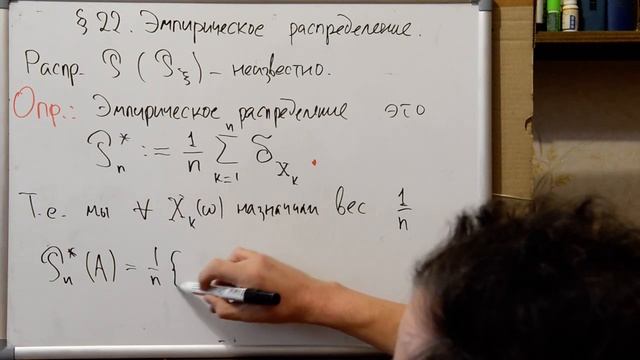 § 22. Эмпирическое распределение.
Распр. P (P_ξ) – неизвестно.
Опр.: Эмпирическое распределение это
P*_n := 1/n ∑_{k=1}^{n} δ_{X_k} .
Т.е. мы ∀ X_k(ω) назначили вес 1/n
P*_n (A) = 1/n {